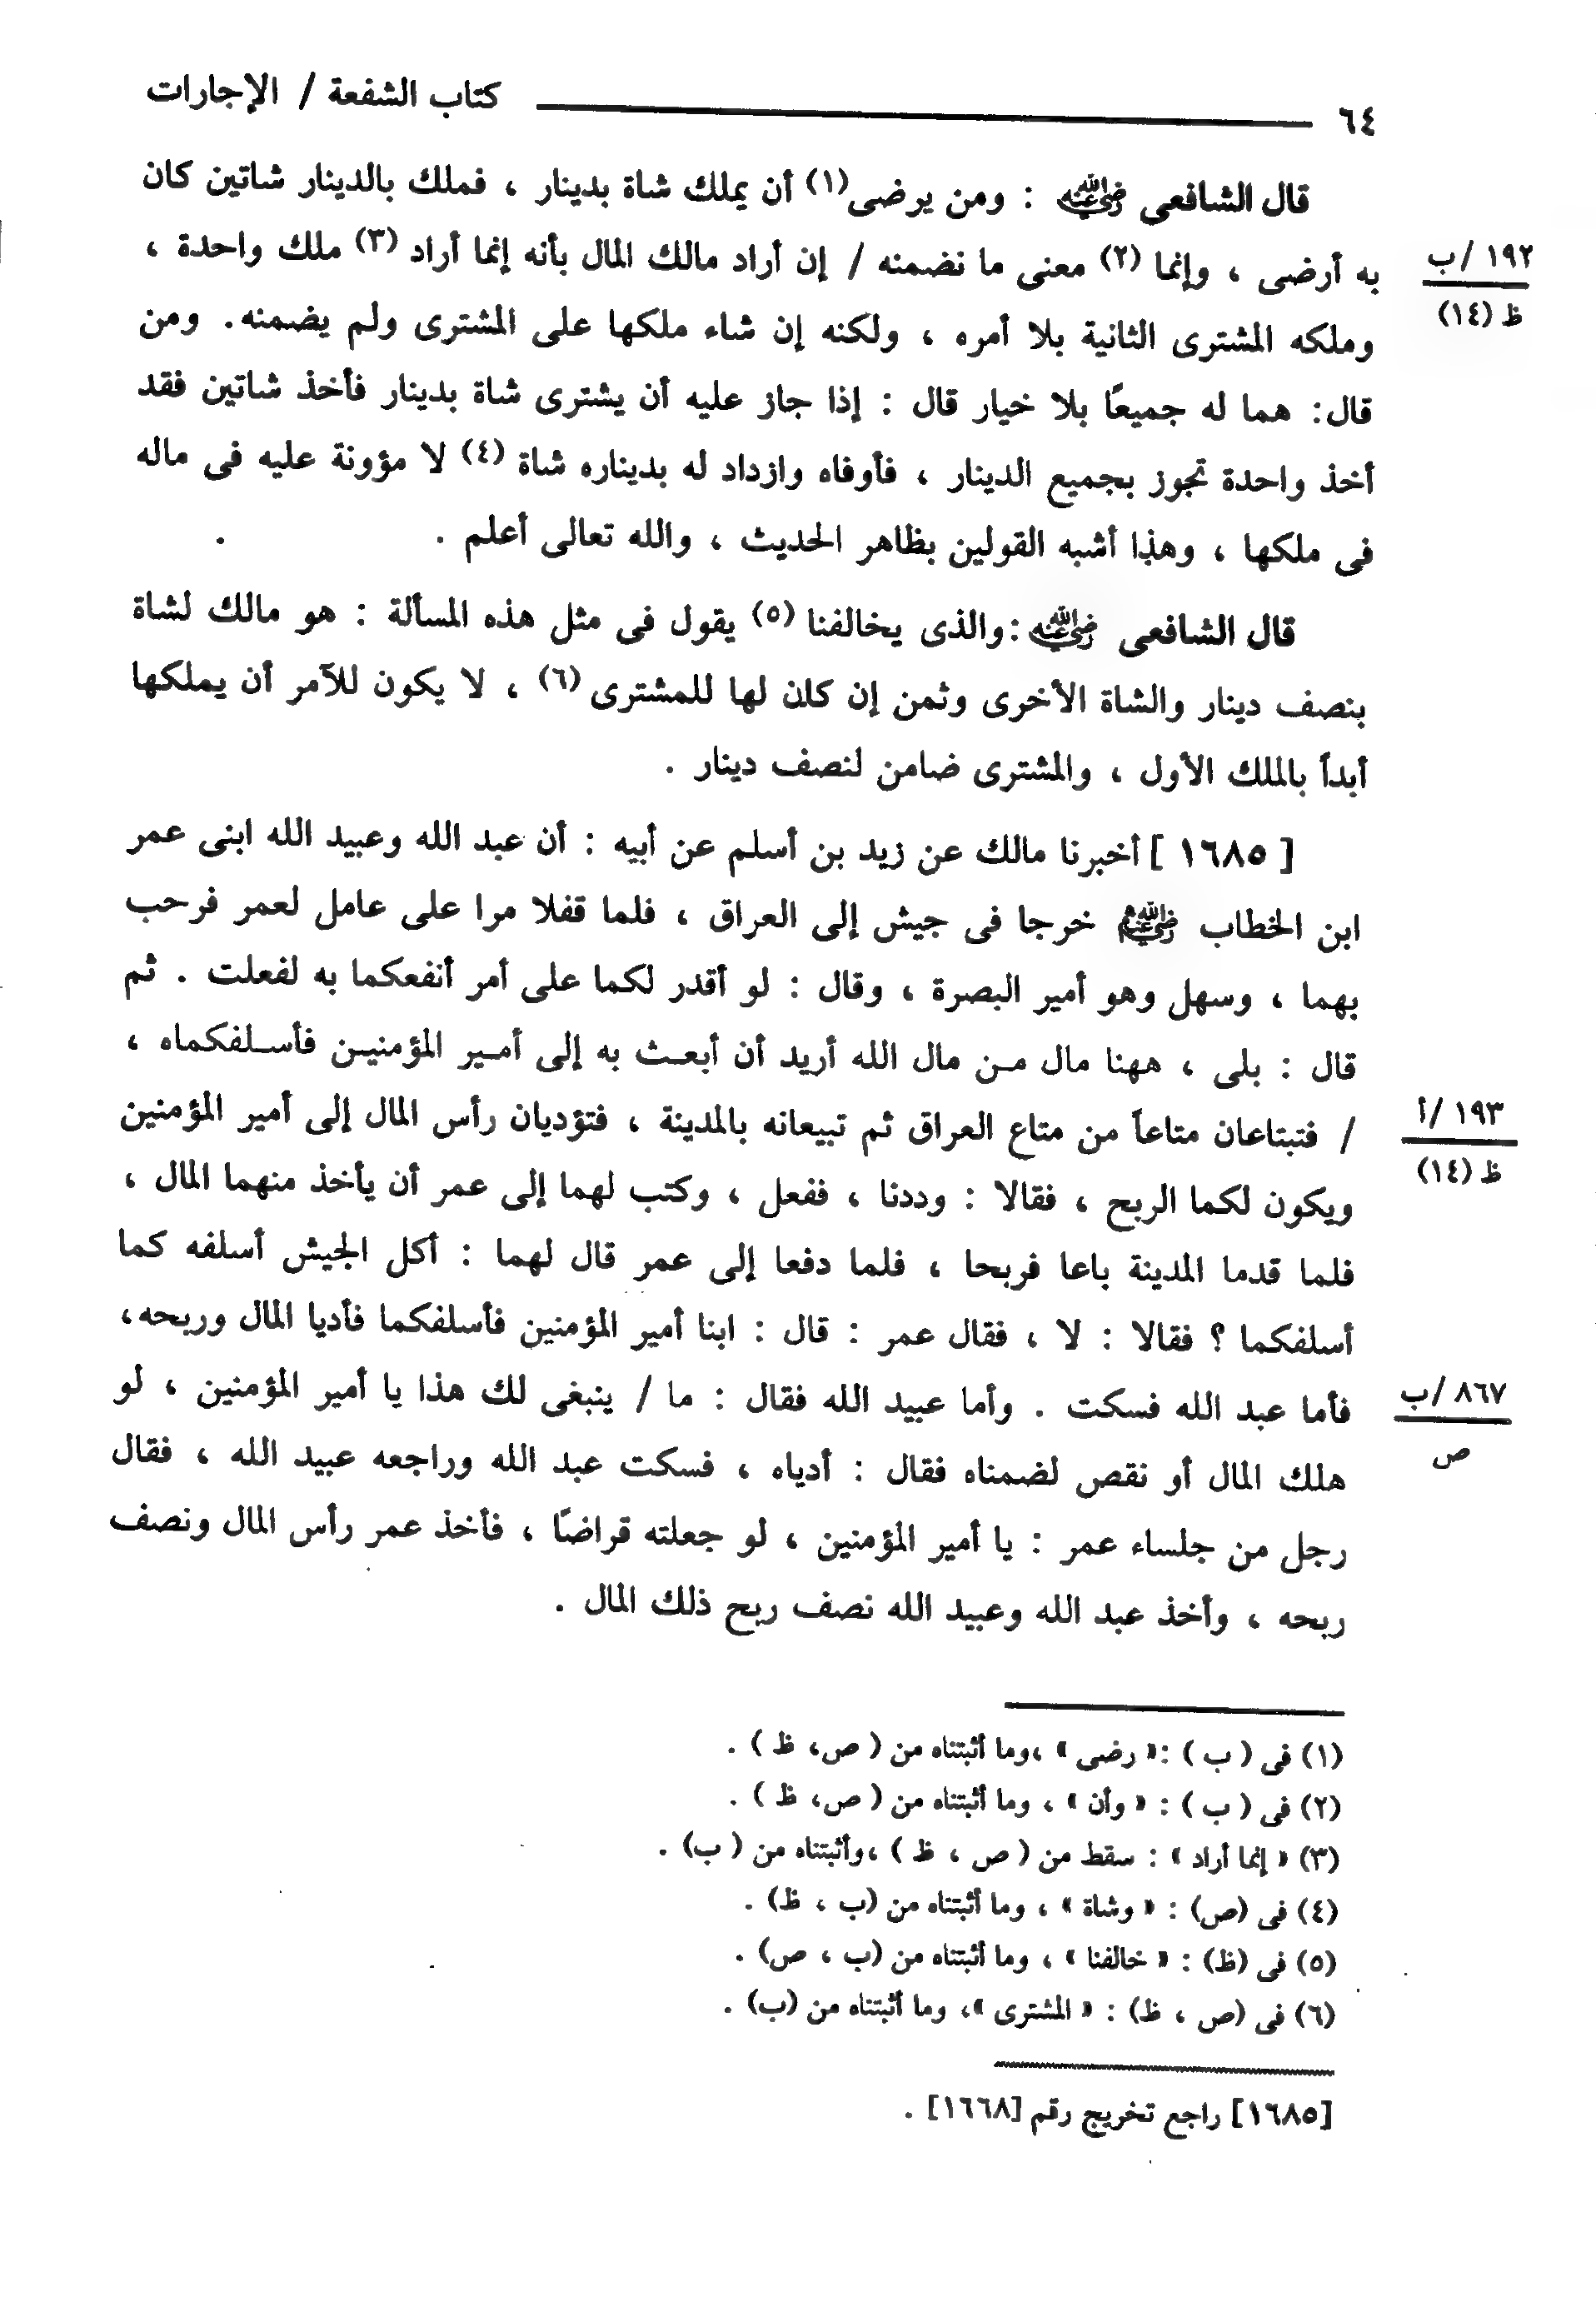 ٦٤ كتاب الشفعة / الإجارات
قال الشافعى رضي الله عنه : ومن يرضى(١) أن يملك شاة بدينار ، فملك بالدينار شاتين كان
به أرضى ، وإنما (٢) معنى ما نضمنه / إن أراد مالك المال بأنه إنما أراد (٣) ملك واحدة ،
١٩٢ /ب
ظ (١٤)
وملكه المشترى الثانية بلا أمره ، ولكنه إن شاء ملكها على المشترى ولم يضمنه. ومن
قال: هما له جميعًا بلا خيار قال : إذا جاز عليه أن يشترى شاة بدينار فأخذ شاتين فقد
أخذ واحدة تجوز بجميع الدينار ، فأوفاه وازداد له بديناره شاة (٤) لا مؤونة عليه فى ماله
فى ملكها ، وهذا أشبه القولين بظاهر الحديث ، والله تعالى أعلم .
قال الشافعى رضي الله عنه :والذى يخالفنا (٥) يقول فى مثل هذه المسألة : هو مالك لشاة
بنصف دينار والشاة الأخرى وثمن إن كان لها للمشترى (٦) ، لا يكون للآمر أن يملكها
أبداً بالملك الأول ، والمشترى ضامن لنصف دينار .
[ ١٦٨٥ ] أخبرنا مالك عن زيد بن أسلم عن أبيه : أن عبد الله وعبيد الله ابنى عمر
ابن الخطاب رضي الله عنهم خرجا فى جيش إلى العراق ، فلما قفلا مرا على عامل لعمر فرحب
بهما ، وسهل وهو أمير البصرة ، وقال : لو أقدر لكما على أمر أنفعكما به لفعلت . ثم
قال : بلى ، ههنا مال مـن مال الله أريد أن أبعـث به إلى أمـير المؤمنيـن فأسـلفكماه ،
/ فتبتاعان متاعاً من متاع العراق ثم تبيعانه بالمدينة ، فتؤديان رأس المال إلى أمير المؤمنين
١٩٣ /أ
ظ (١٤)
ويكون لكما الربح ، فقالا : وددنا ، ففعل ، وكتب لهما إلى عمر أن يأخذ منهما المال ،
فلما قدما المدينة باعا فربحا ، فلما دفعا إلى عمر قال لهما : أكل الجيش أسلفه كما
أسلفكما ؟ فقالا : لا ، فقال عمر : قال : ابنا أمير المؤمنين فأسلفكما فأديا المال وربحه،
فأما عبد الله فسكت . وأما عبيد الله فقال : ما / ينبغى لك هذا يا أمير المؤمنين ، لو
٨٦٧ /ب
ص
هلك المال أو نقص لضمناه فقال : أدياه ، فسكت عبد الله وراجعه عبيد الله ، فقال
رجل من جلساء عمر : يا أمير المؤمنين ، لو جعلته قراضًا ، فأخذ عمر رأس المال ونصف
ربحه ، وأخذ عبد الله وعبيد الله نصف ربح ذلك المال .
(١) فى ( ب ) :« رضى » ،وما أثبتناه من ( ص، ظ ) .
(٢) فى ( ب ) : « وأن » ، وما أثبتناه من ( ص، ظ ) .
(٣) « إنما أراد » : سقط من ( ص ، ظ ) ،وأثبتناه من ( ب) .
(٤) فى (ص) : « وشاة » ، وما أثبتناه من (ب ، ظ) .
(٥) فى (ظ) : « خالفنا » ، وما أثبتناه من (ب ، ص) .
(٦) فى (ص ، ظ) : « المشترى »، وما أثبتناه من (ب) .
[١٦٨٥] راجع تخريج رقم [١٦٦٨] .